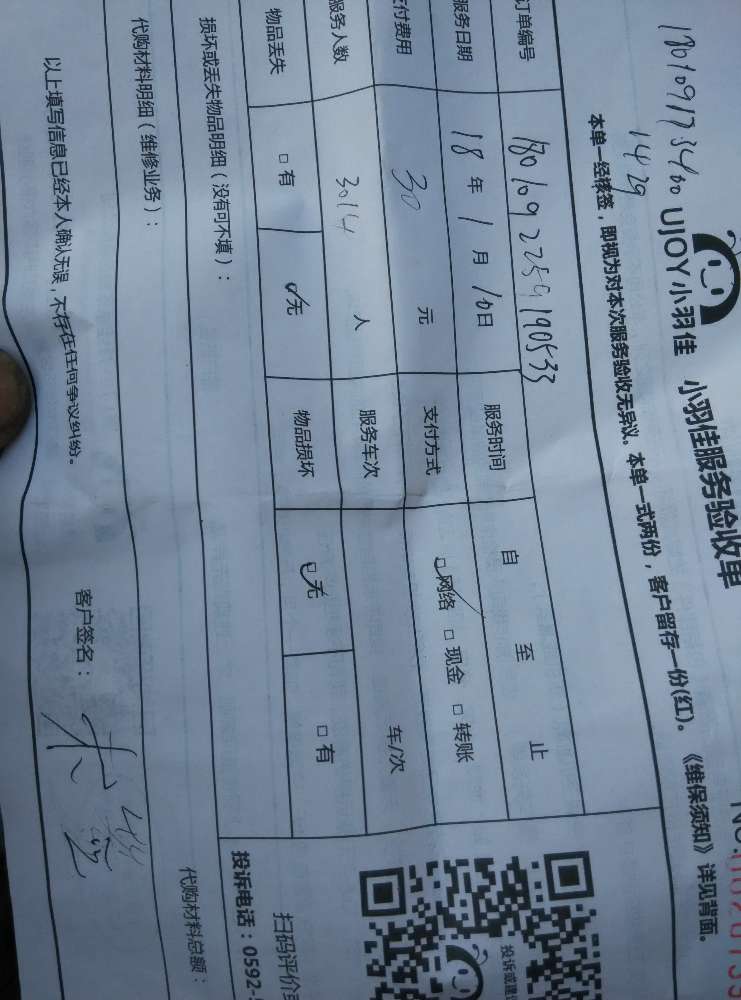 180109173400
1429
UJOY小羽佳 小羽佳服务验收单
本单一经核签，即视为对本次服务验收无异议。本单一式两份，客户留存一份(红)。《维保须知》详见背面。
订单编号 1801092259190533
服务日期 18年1月10日 服务时间 自 至 止
支付费用 30 元 支付方式 □网络 □现金 □转账
服务人数 3014 人 服务车次 车/次
物品丢失 □有 □无 物品损坏 □无 □有
损坏或丢失物品明细（没有可不填）：
代购材料明细（维修业务）： 代购材料总额：
以上填写信息已经本人确认无误，不存在任何争议纠纷。 客户签名：
扫码评价
投诉电话：0592-